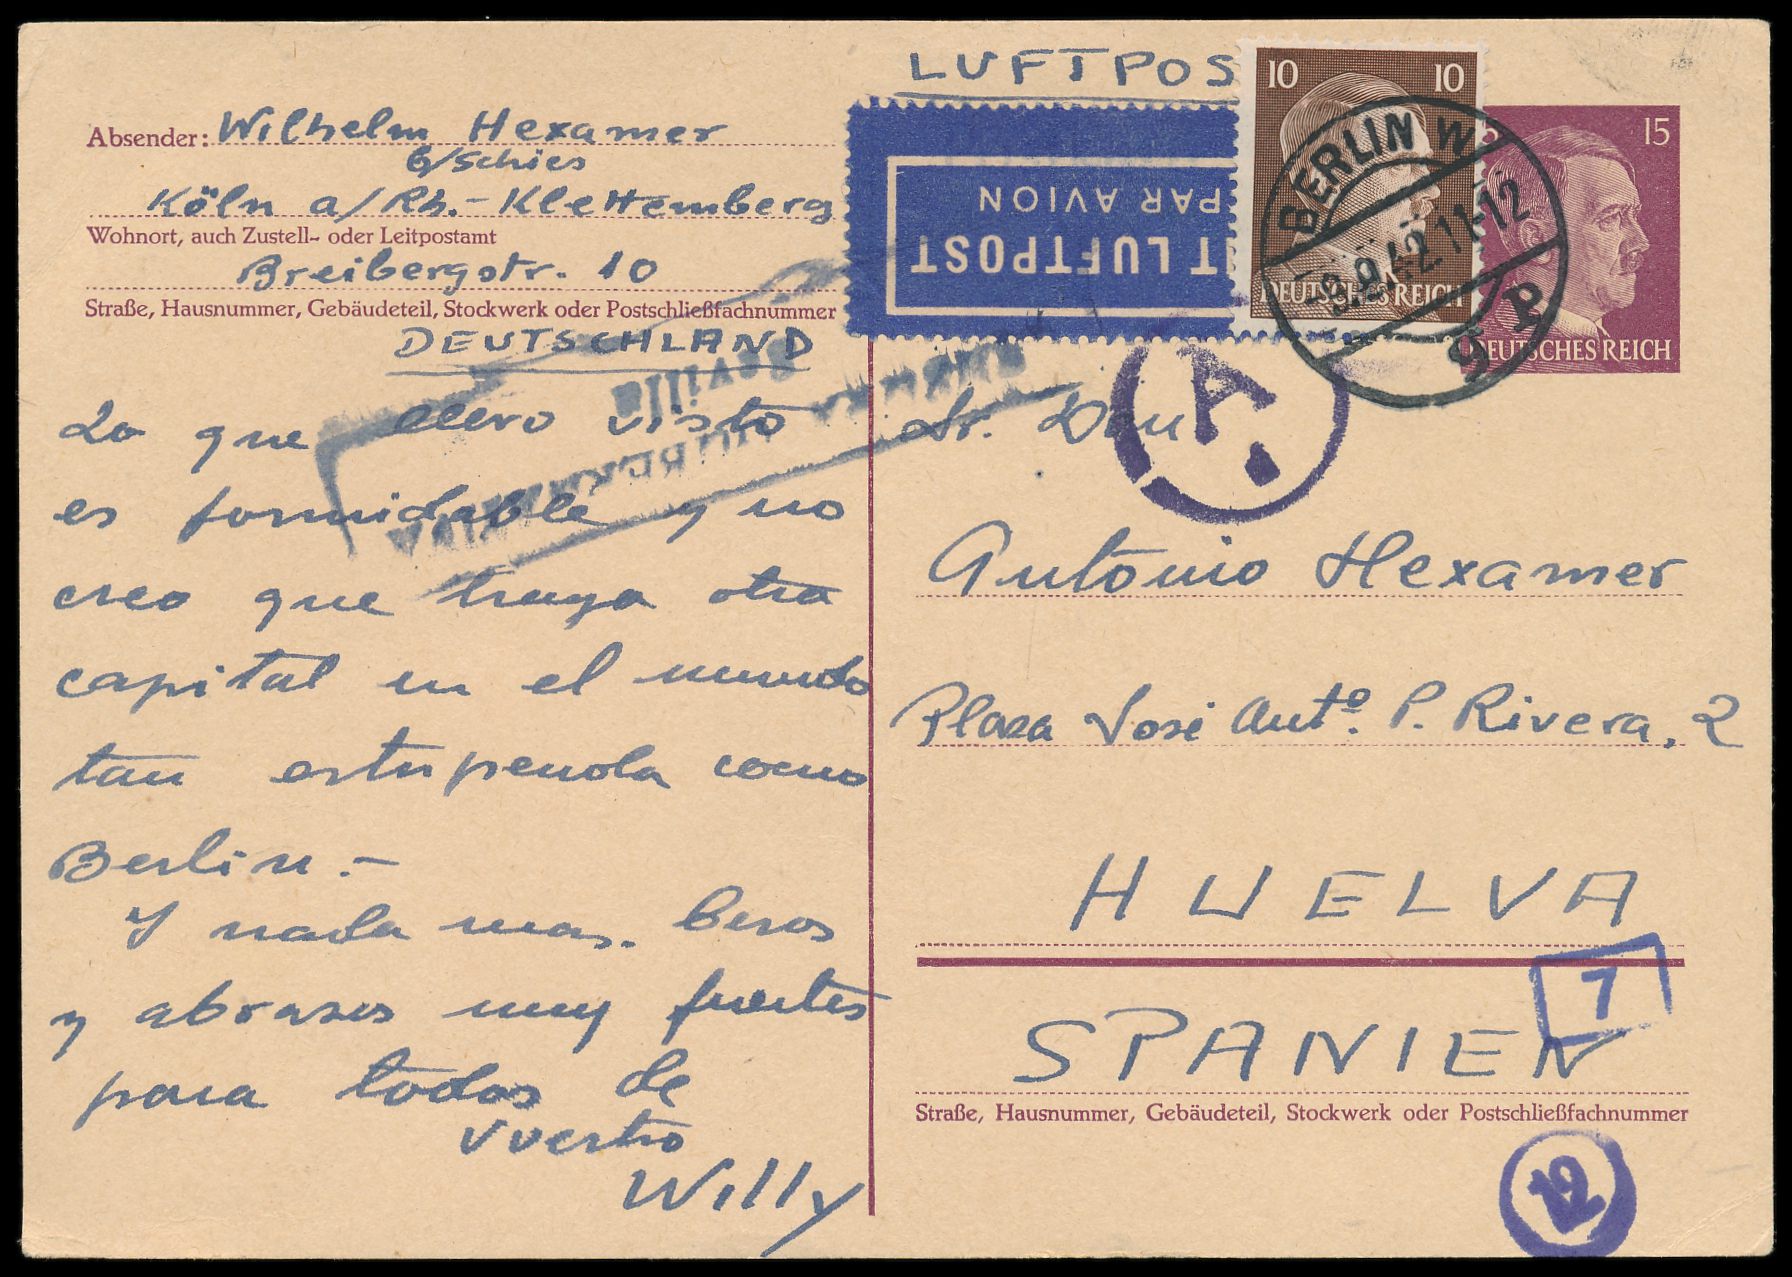 LUFTPOS
Absender: Wilhelm Hexamer
b/Schies
Köln a/Rh.-Klettemberg
Wohnort, auch Zustell- oder Leitpostamt
Breibergstr. 10
Straße, Hausnummer, Gebäudeteil, Stockwerk oder Postschließfachnummer
DEUTSCHLAND
Lo que llevo visto
es formidable y no
creo que haya otra
capital en el mundo
tan estupenda como
Berlin.-
Y nada mas. Besos
y abrasos muy fuertes
para todos de
vuestro
Willy
T LUFTPOST
PAR AVION
10 10
DEUTSCHES REICH
BERLIN W
-9.9.42.11-12
9 P
15
DEUTSCHES REICH
A
CENSURA GUBERNATIVA
Sevilla
Sr. Don
Antonio Hexamer
Plaza José Antº. P. Rivera, 2
HUELVA
SPANIEN
7
Straße, Hausnummer, Gebäudeteil, Stockwerk oder Postschließfachnummer
12